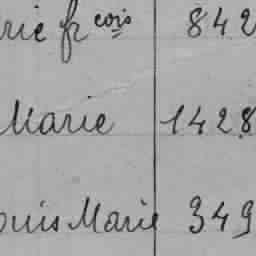 rie fr çois 842
Marie 1428
ouis Marie 349